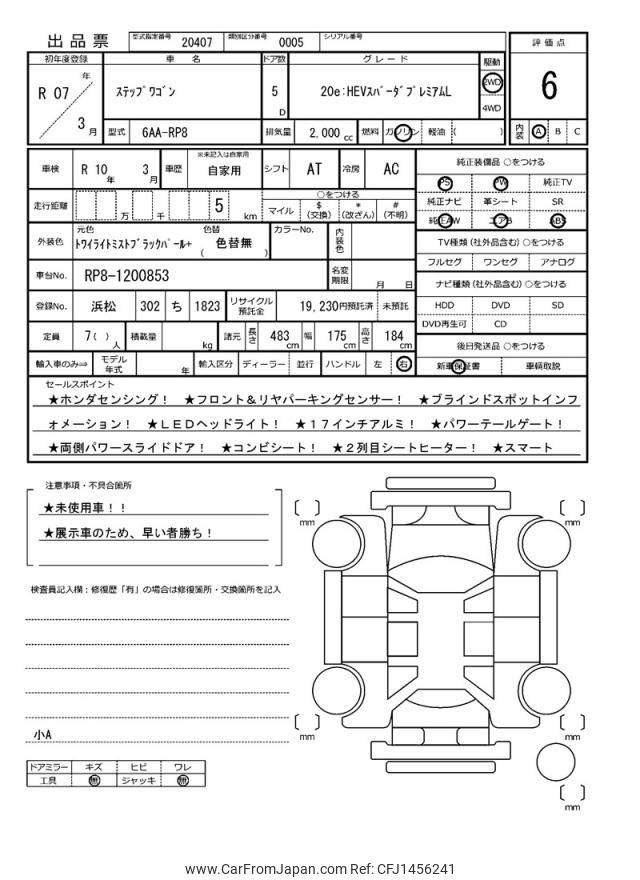 出品票 型式指定番号 20407 類別区分番号 0005 シリアル番号
初年度登録 車名 ドア数 グレード 駆動 評価点
R 07 年 3 月 ステップワゴン 5 D 20e:HEVスパーダプレミアムL 2WD 4WD 6
型式 6AA-RP8 排気量 2,000 cc 燃料 ガソリン 軽油 ( ) 内装 A B C
車検 R 10 年 3 月 車歴 ※未記入は自家用 自家用 シフト AT 冷房 AC 純正装備品 ○をつける
PS PW 純正TV
走行距離 万 千 5 km ○をつける 純正ナビ 革シート SR
マイル $ (交換) * (改ざん) # (不明) 純正AW エアB ABS
外装色 元色 トワイライトミストブラックパール+ 色替 ( 色替無 ) カラーNo. 内装色 TV種類 (社外品含む) ○をつける
フルセグ ワンセグ アナログ
車台No. RP8-1200853 名変期限 月 日 ナビ種類 (社外品含む) ○をつける
登録No. 浜松 302 ち 1823 リサイクル預託金 19,230円預託済 未預託 HDD DVD SD
DVD再生可 CD
定員 7( ) 人 積載量 kg 諸元 長さ 483 cm 幅 175 cm 高さ 184 cm 後日発送品 ○をつける
輸入車のみ⇒ モデル年式 年 輸入区分 ディーラー 並行 ハンドル 左 右 新車保証書 車輌取説
セールスポイント
★ホンダセンシング! ★フロント&リヤパーキングセンサー! ★ブラインドスポットインフ
ォメーション! ★LEDヘッドライト! ★17インチアルミ! ★パワーテールゲート!
★両側パワースライドドア! ★コンビシート! ★2列目シートヒーター! ★スマート
注意事項・不具合箇所
★未使用車!!
★展示車のため、早い者勝ち!
検査員記入欄:修復歴「有」の場合は修復箇所・交換箇所を記入
小A
ドアミラー キズ ヒビ ワレ
工具 無 ジャッキ 無
mm
mm
mm
mm
mm
www.CarFromJapan.com Ref: CFJ1456241